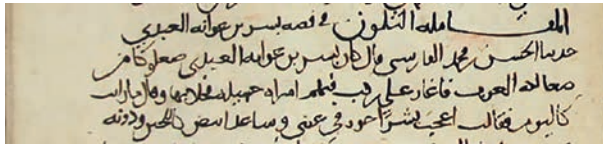 المقامه الثلثون في قصه بسر بن عوانه العبدي
حدثنا الحسن بن محمد الفارسي قال كان بسر بن عوانه العبدي صعلوكا من
صعاليك العرب فاغار على ركب فيهم امراه جميله فتزوجها وقال ما رايت
كاليوم فقالت اعجب بشرا حور في عيني وساعد ابيض كاللجين ودونه